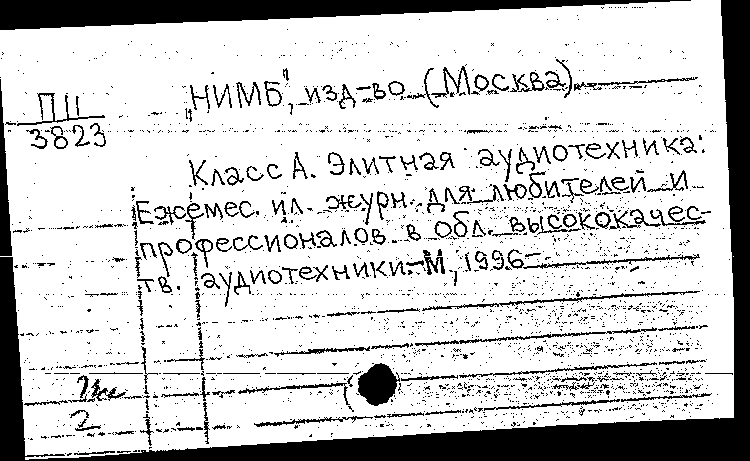 П11
3823
„НИМБ", изд-во (Москва).
Класс А. Элитная аудиотехника:
Ежемес. ил. журн. для любителей и
профессионалов в обл. высококачес-
тв. аудиотехники.-М, 1996-
2